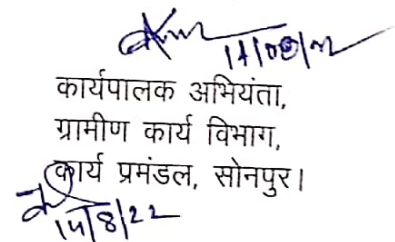 कार्यपालक अभियंता,
ग्रामीण कार्य विभाग,
कार्य प्रमंडल, सोनपुर।
14/8/22